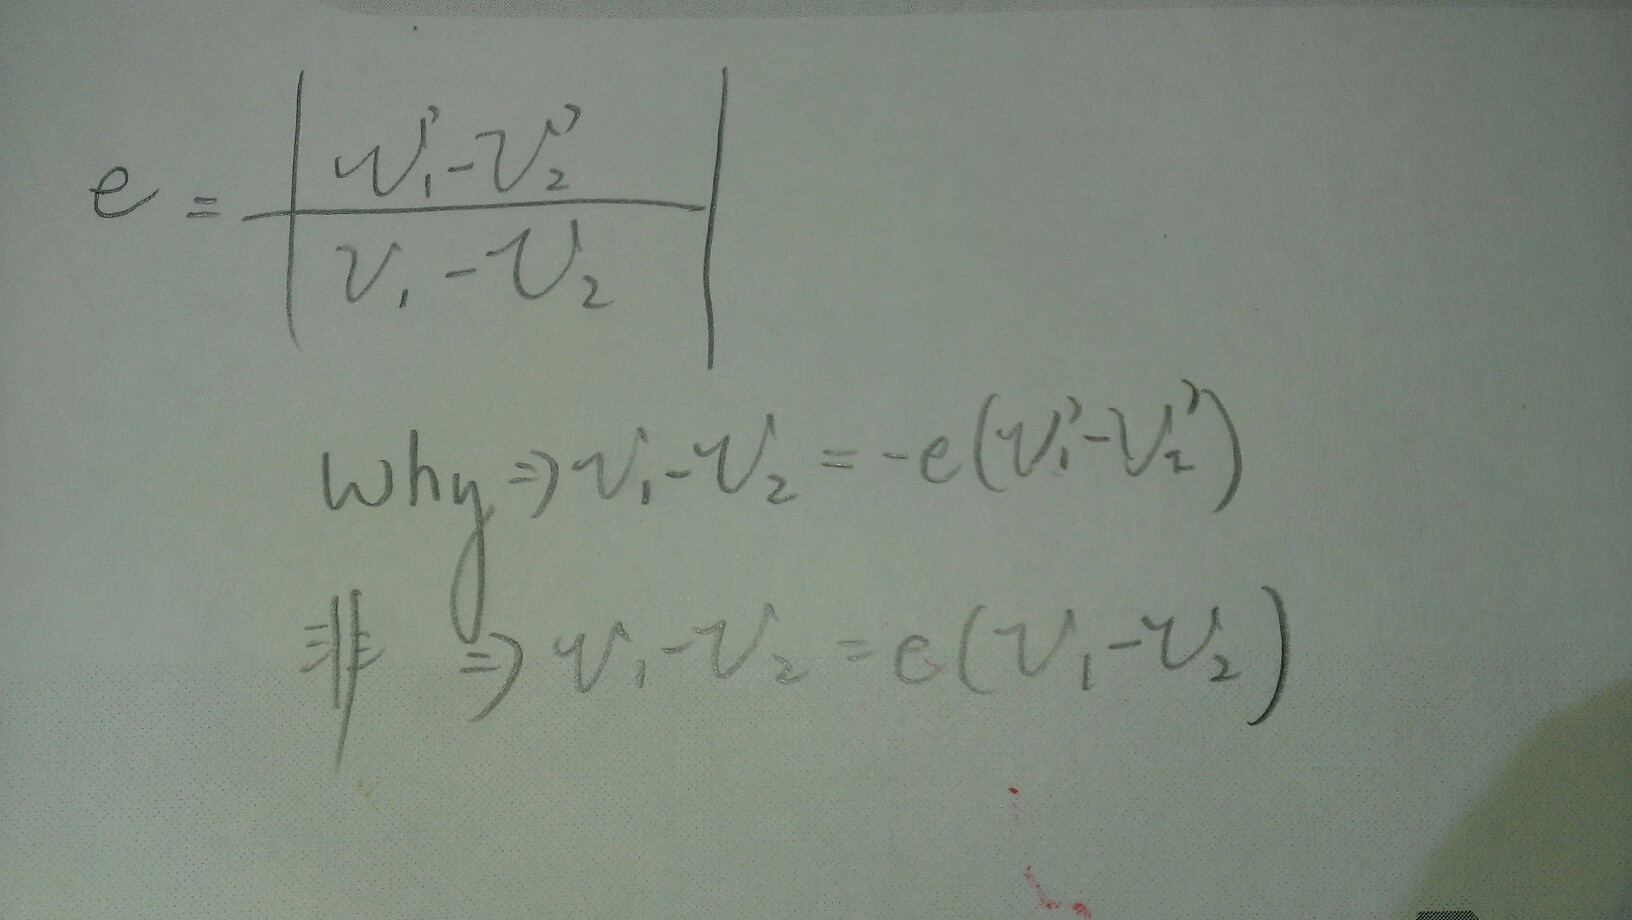 e = | (v₁' - v₂') / (v₁ - v₂) |
why ⇒ v₁ - v₂ = -e(v₁' - v₂')
非 ⇒ v₁ - v₂ = e(v₁ - v₂)